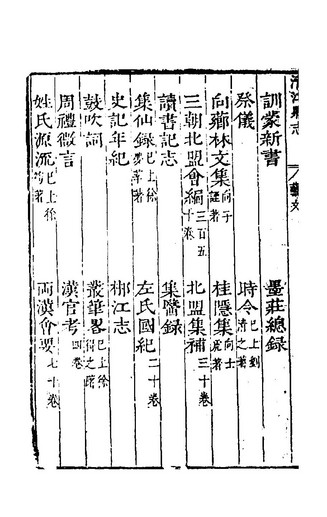 清江縣志 藝文
訓蒙新書 墨莊總錄
祭儀 時令 已上劉清之著
向薌林文集 向子諲著 桂隱集 向士著
三朝北盟會編 三百五十卷 北盟集補 三十卷
讀書記志 集醫錄
集仙錄 已上徐夢莘著 左氏國紀 二十卷
史記年紀 郴江志
鼓吹詞 叢筆畧 已上徐得之著
周禮微言 漢官考 四卷
姓氏源流 已上徐筠著 兩漢會要 七十卷